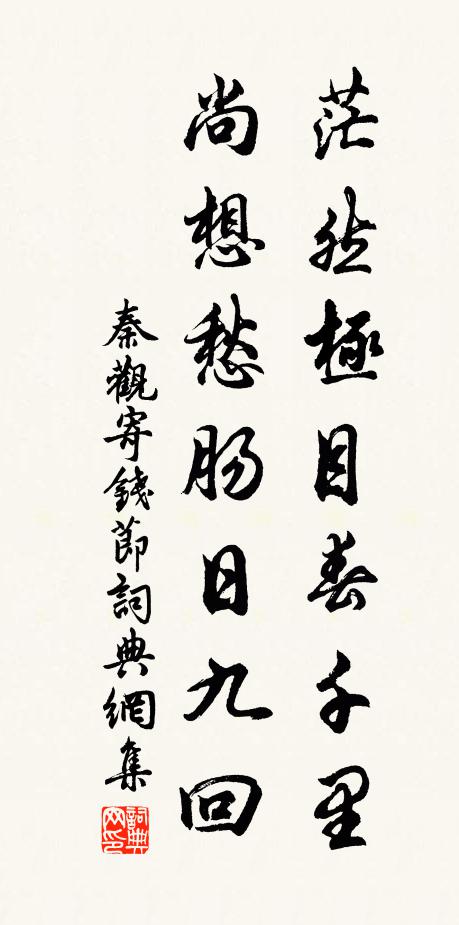 茫然極目春千里
尚想愁腸日九回
秦觀寄錢節詞典網集
詞典網印